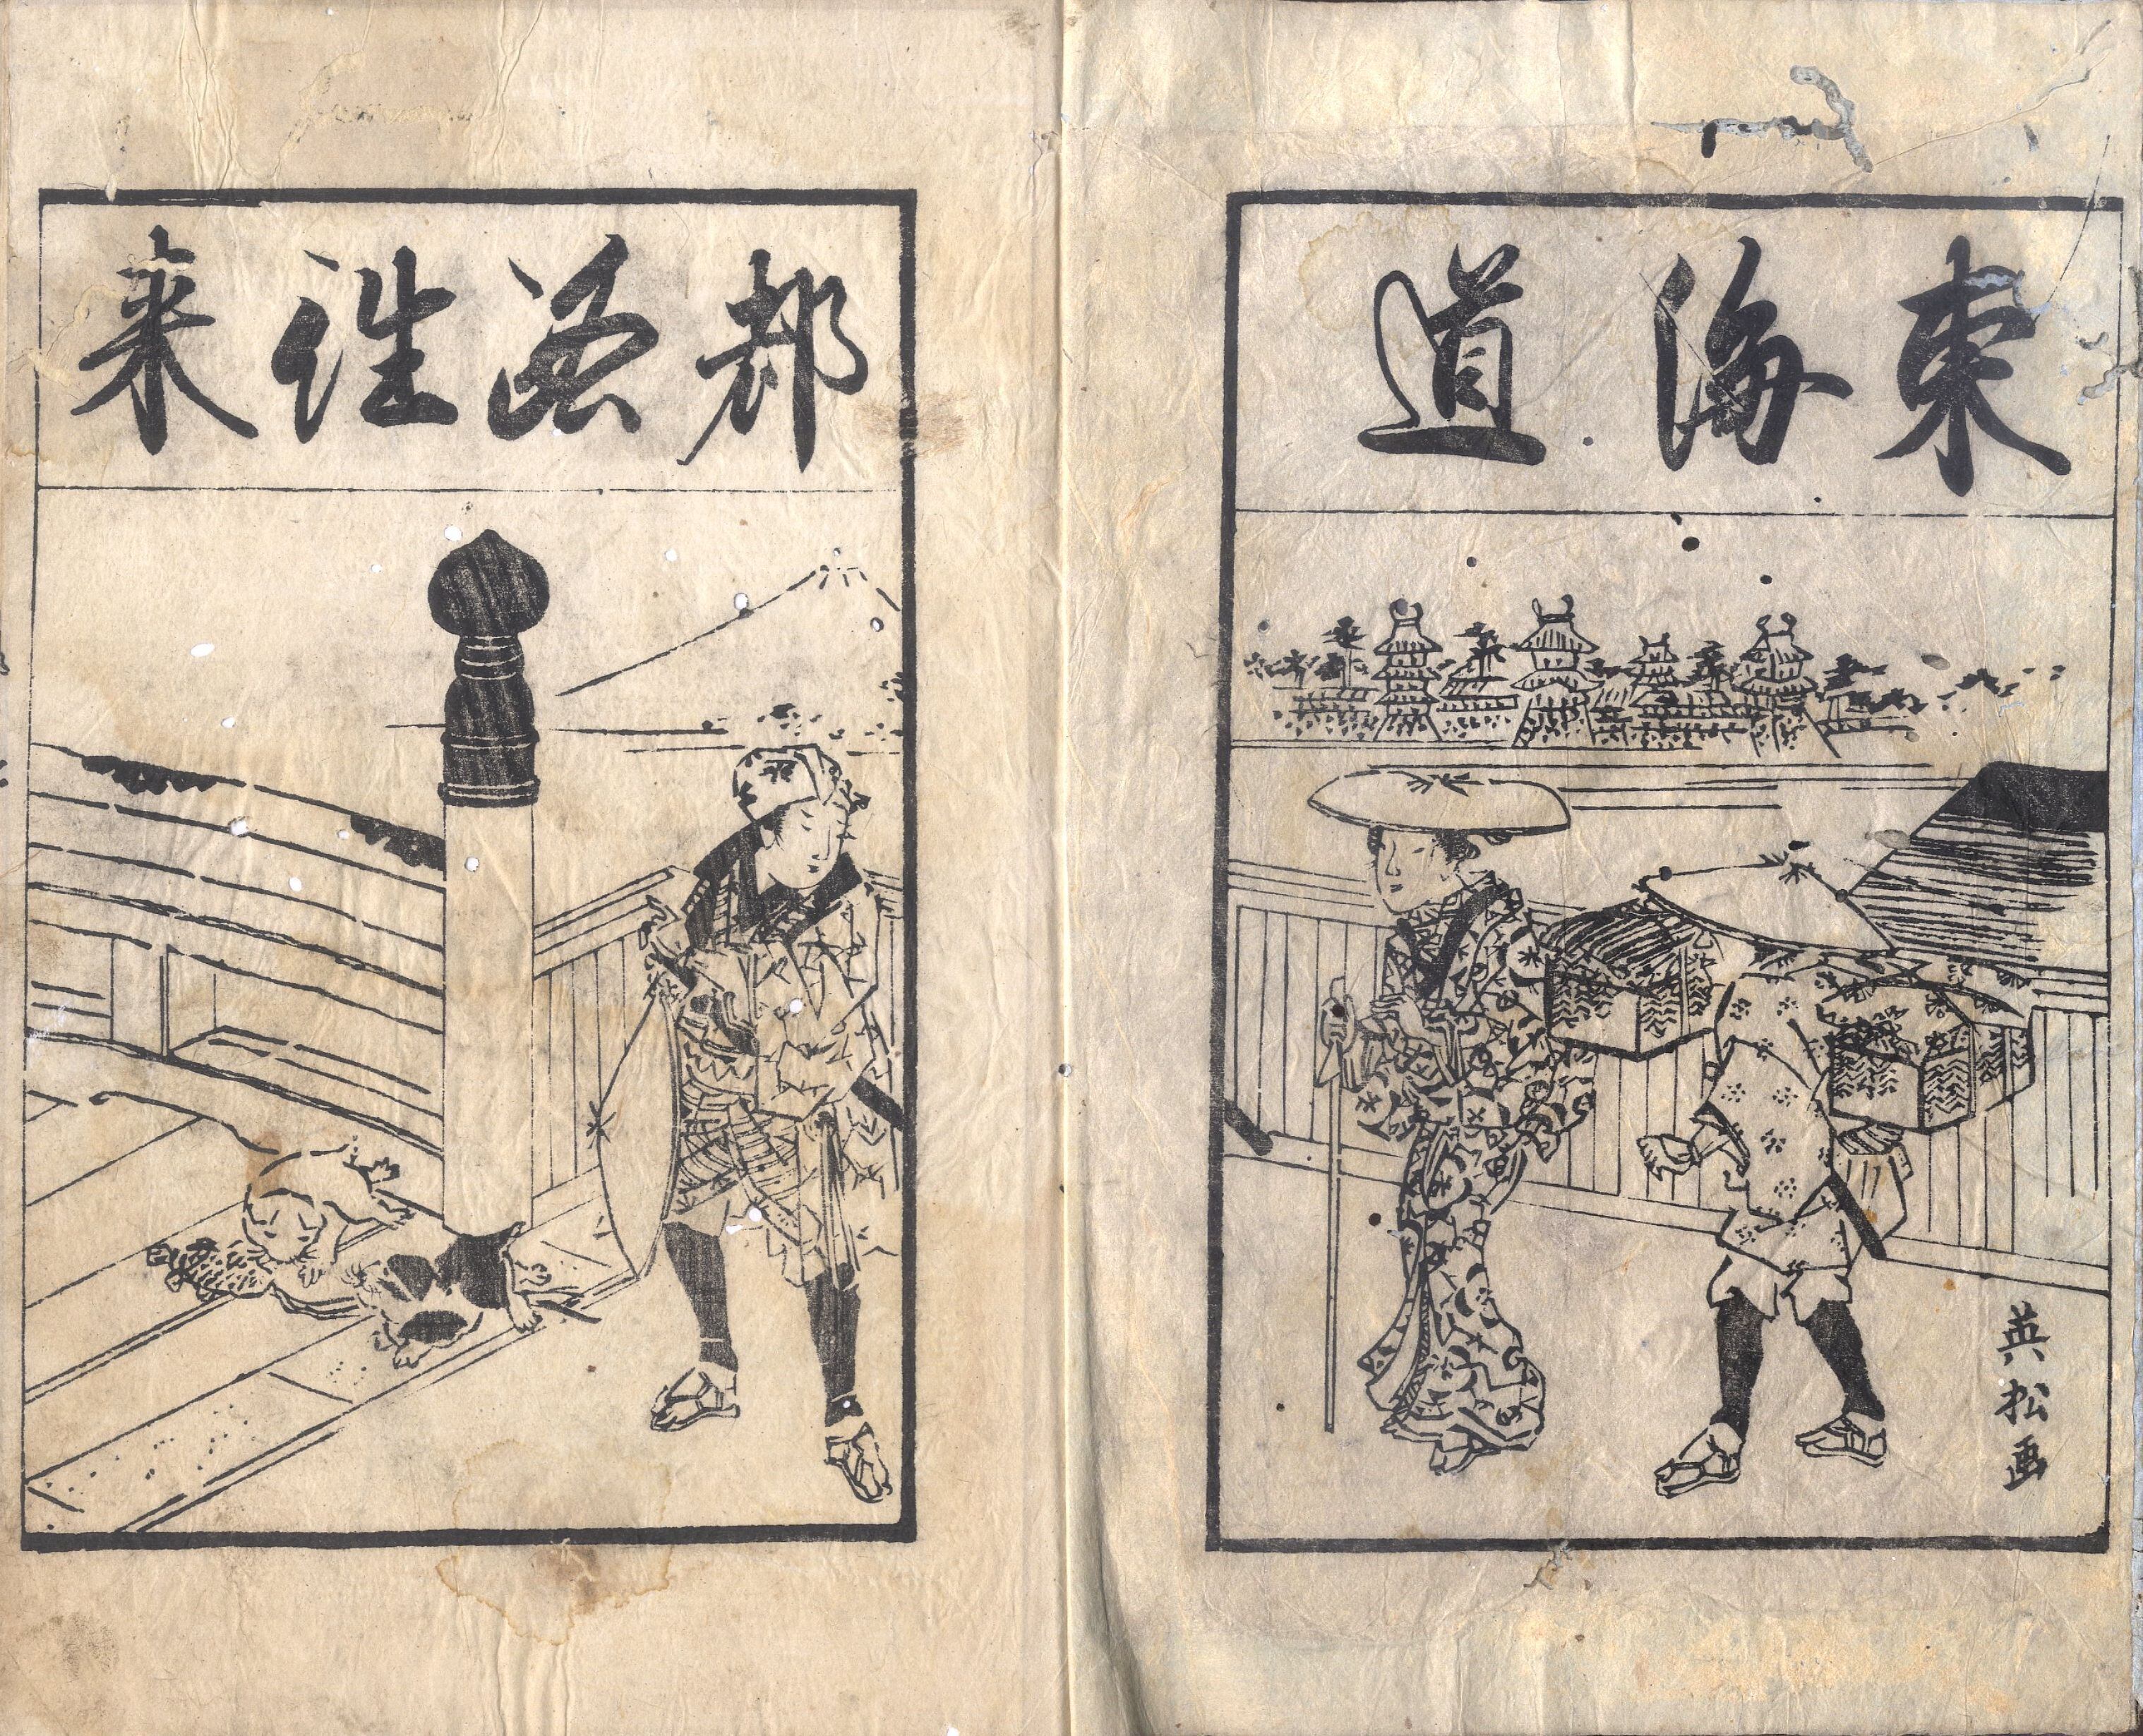 東海道
都路往来
英松画